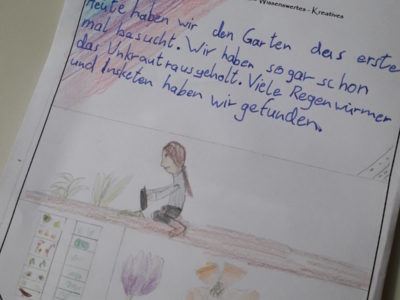 Wissenswertes - Kreatives
Heute haben wir den Garten das erste
mal besucht. Wir haben sogar schon
das Unkraut rausgeholt. Viele Regenwürmer
und Insketen haben wir gefunden.